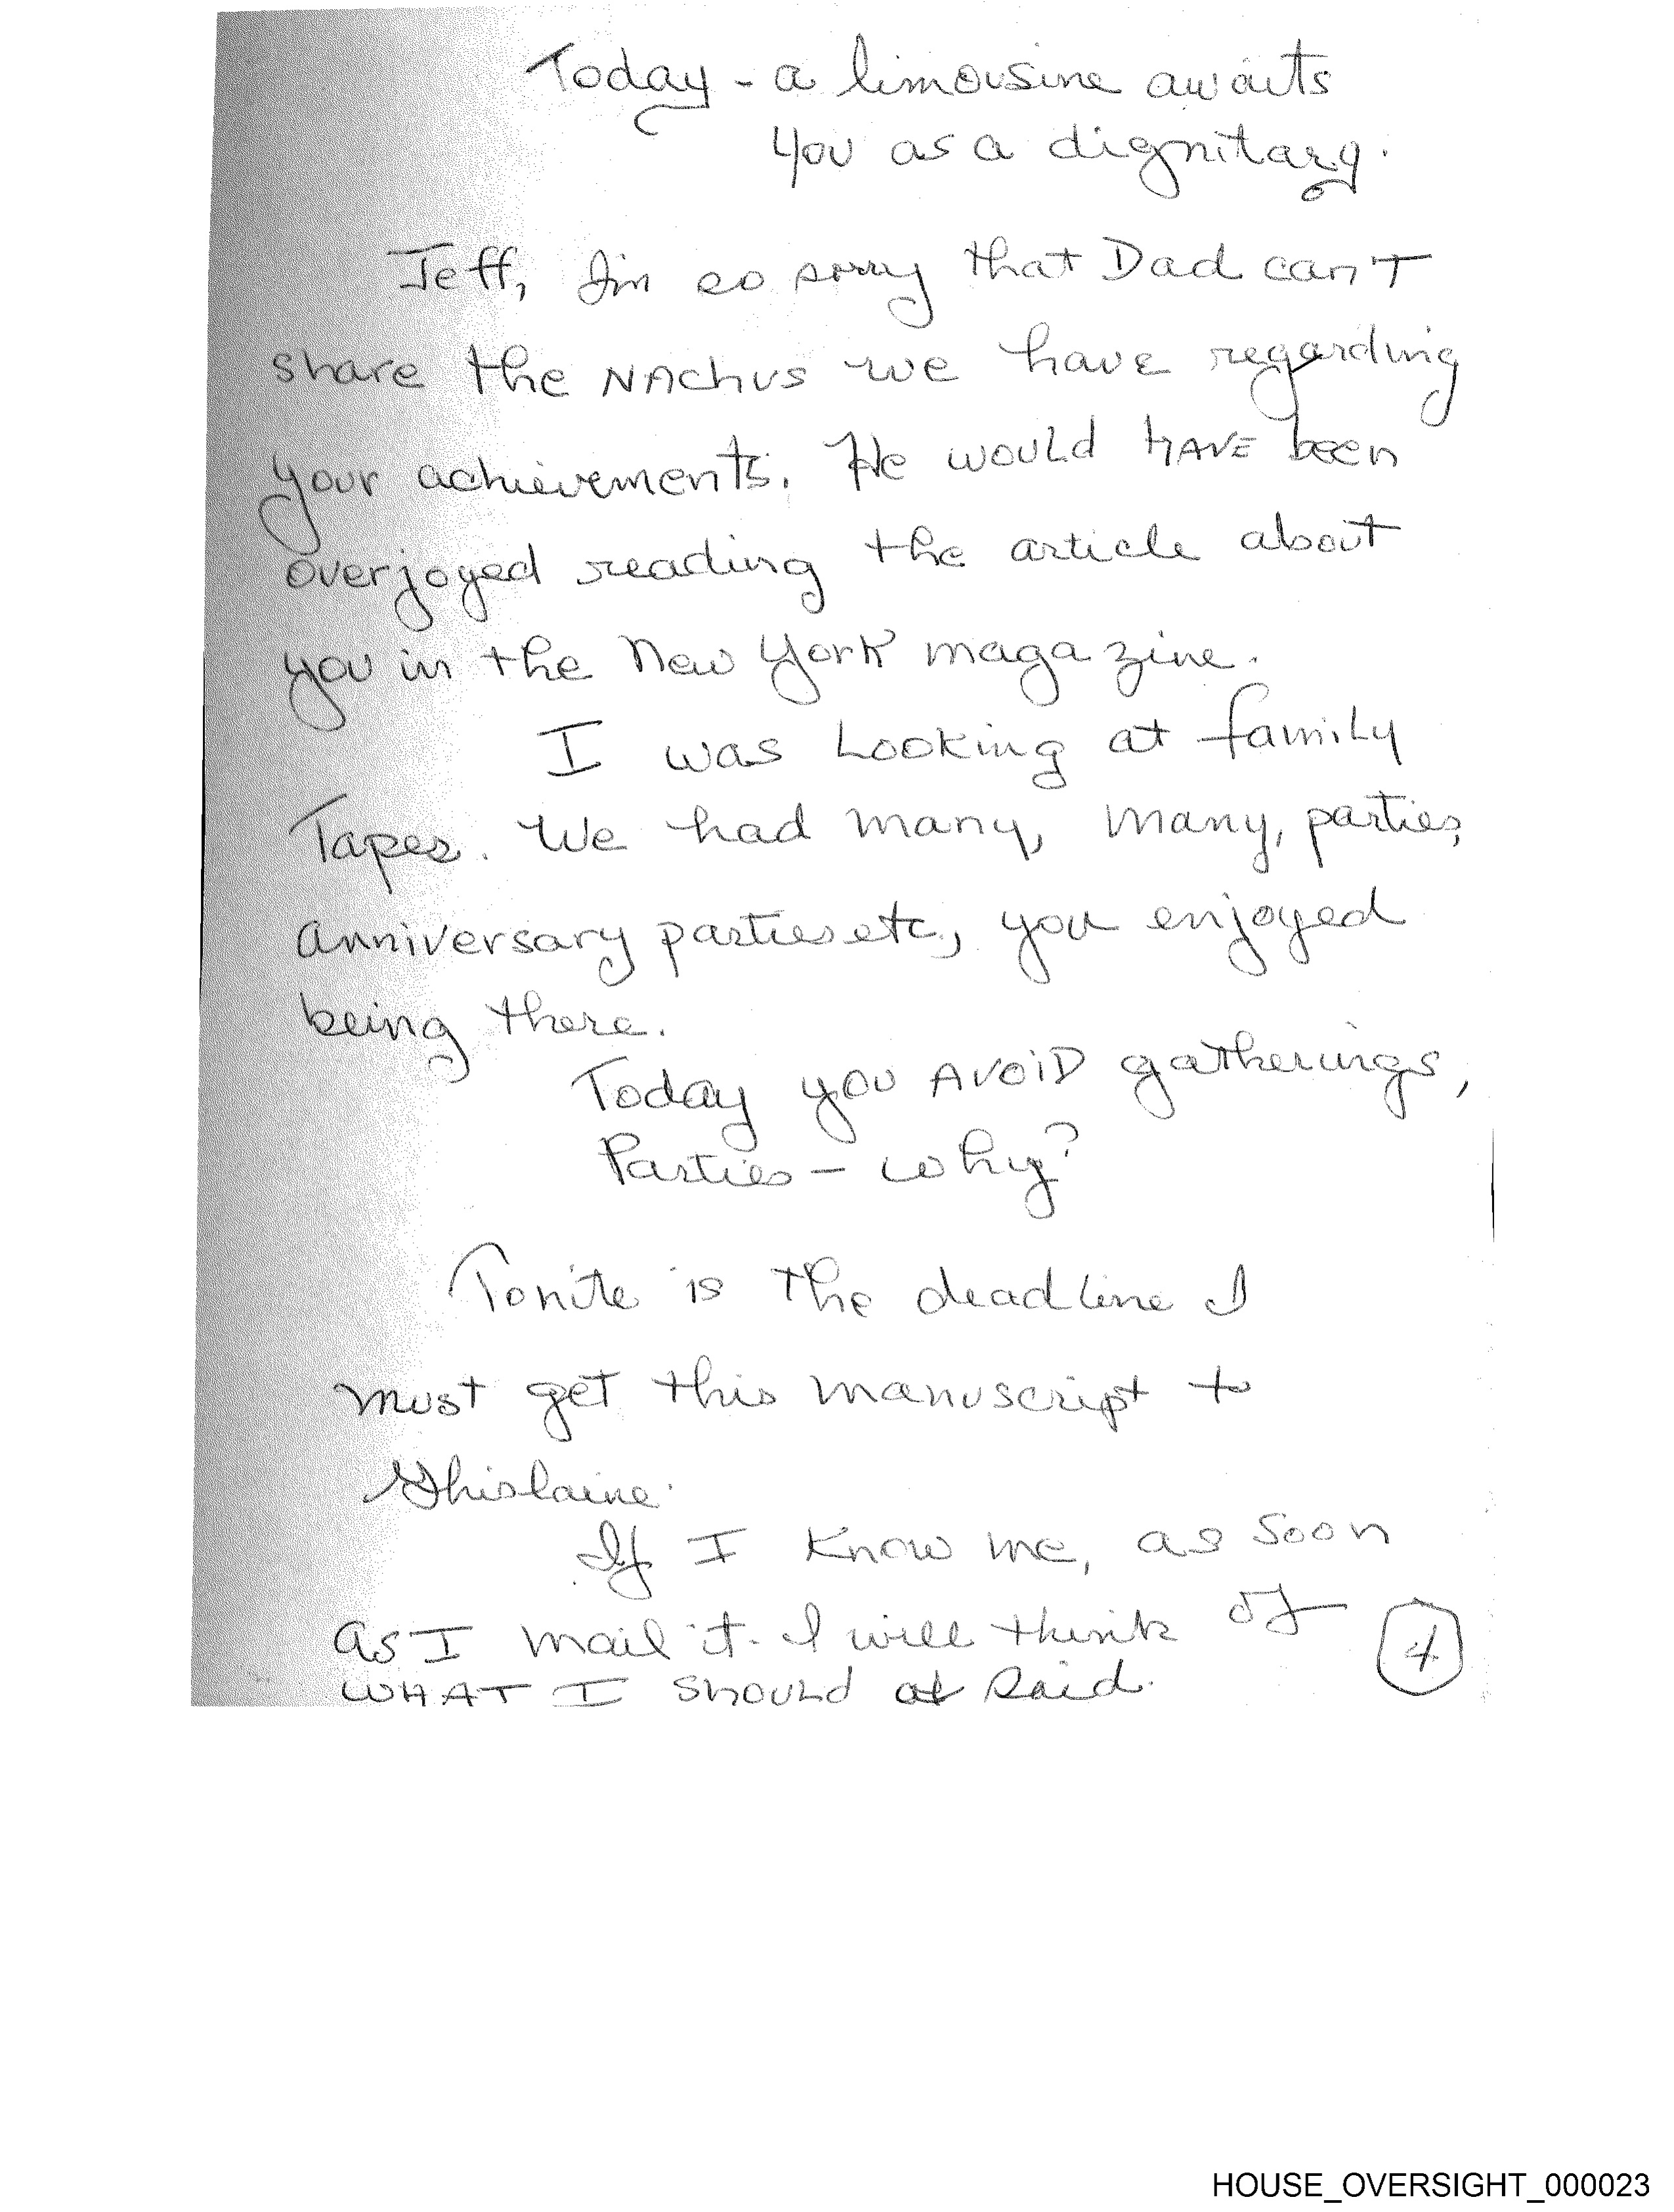 Today - a limousine awaits
you as a dignitary.
Jeff, I'm so sorry that Dad can't
share the NAchus we have regarding
your achievements. He would HAVE been
overjoyed reading the article about
you in the New York magazine.
I was Looking at family
Tapes. We had many, many, parties,
anniversary parties etc, you enjoyed
being there.
Today you AVOID gatherings,
Parties - why?
Tonite is the deadline I
must get this manuscript to
Ghislaine.
If I know me, as soon
as I mail it. I will think of
WHAT I should at said.
4
HOUSE_OVERSIGHT_000023